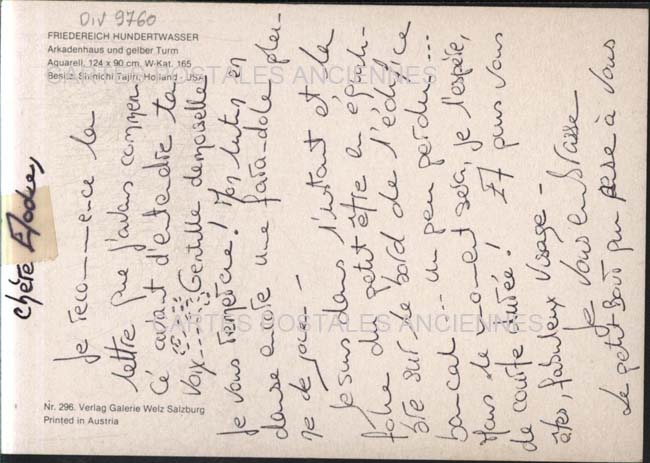 DIV 9760
FRIEDEREICH HUNDERTWASSER
Arkadenhaus und gelber Turm
Aquarell, 124 x 90 cm, W-Kat. 165
Besitz: Shinichi Tajiri, Holland - USA
CARTES POSTALES ANCIENNES
chère Elodie,
Je recommence la
lettre que j'avais commen
cé avant d'entendre ta
voix Gentille demoiselle
je vous remercie! Mon lutin en
danse encore une farandole plei-
ne de joie.
Je suis dans l'instant et la
folie du petit être en équili-
bre sur le bord de l'édifice
bancal... un peu perdu...
Mais le moment sera, je l'espère,
de courte durée! Et puis vous
êtes, fabuleux visage-
Je vous embrasse
Le petit bout qui pense à vous
CARTES POSTALES ANCIENNES
Nr. 296. Verlag Galerie Welz Salzburg
Printed in Austria